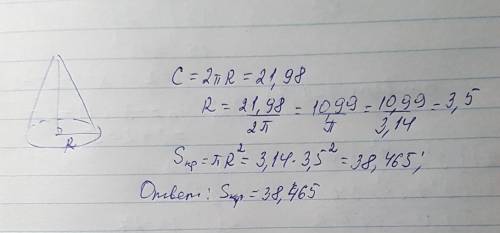 C = 2πR = 21,98
R = 21,98/2π = 10,99/π = 10,99/3,14 = 3,5
Sкр = πR² = 3,14 · 3,5² = 38,465;
Ответ: Sкр = 38,465
R